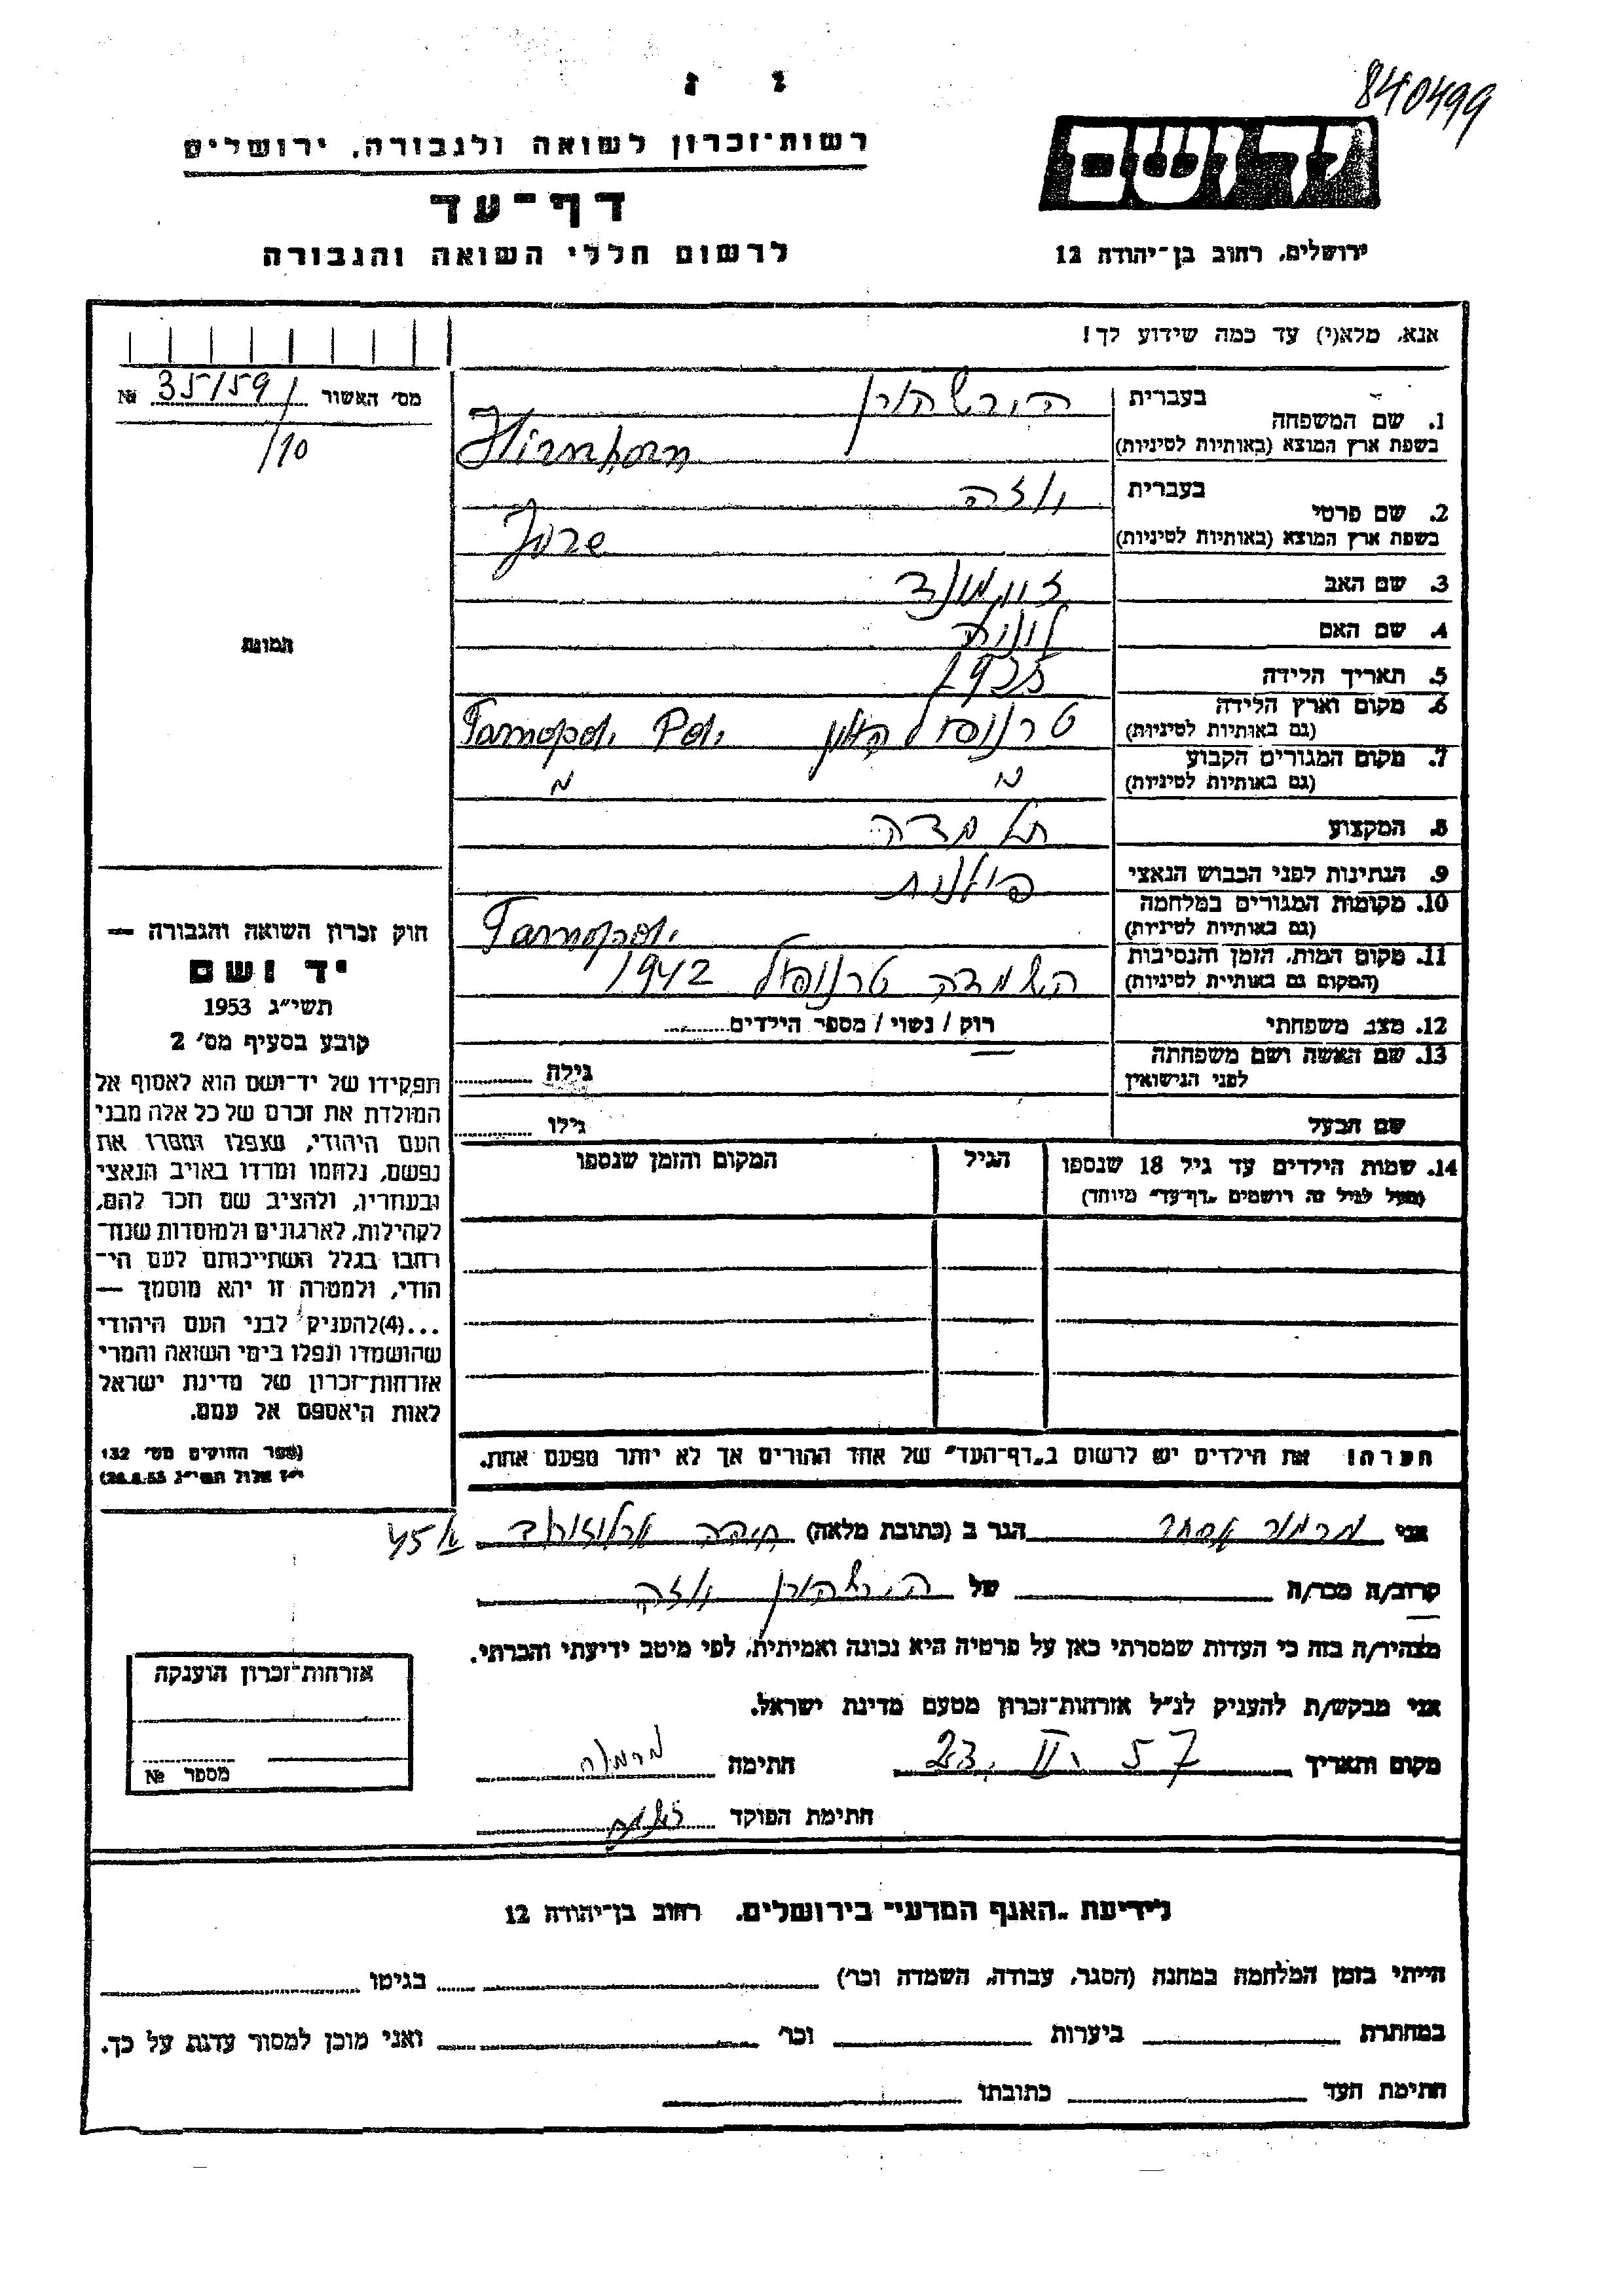 840499
יד ושם
רשות־זכרון לשואה ולגבורה, ירושלים
דף־עד
לרשום חללי השואה והגבורה
ירושלים, רחוב בן־יהודה 12
אנא, מלא(י) עד כמה שידוע לך!
מס' האשור 35159 №
/10
תמונה
1. שם המשפחה בעברית הירשהורן
בשפת ארץ המוצא (באותיות לטיניות) Hirnhorn
2. שם פרטי בעברית
בשפת ארץ המוצא (באותיות לטיניות)
3. שם האב זיגמונד
4. שם האם
5. תאריך הלידה
6. מקום וארץ הלידה טרנופול פולין Tarnopol. Pol.
(גם באותיות לטיניות)
7. מקום המגורים הקבוע
(גם באותיות לטיניות)
8. המקצוע תלמידה
9. הנתינות לפני הכבוש הנאצי פולנית
10. מקומות המגורים במלחמה Tarnopol.
(גם באותיות לטיניות)
11. מקום המות, הזמן והנסיבות השמדה טרנופול 1942
(המקום גם באותיות לטיניות)
12. מצב משפחתי רוק / נשוי / מספר הילדים
13. שם האשה ושם משפחתה גילה
לפני הנישואין
שם הבעל גילו
14. שמות הילדים עד גיל 18 שנספו הגיל המקום והזמן שנספו
(מעל לגיל זה רושמים „דף־עד" מיוחד)
הערה! את הילדים יש לרשום ב„דף־העד" של אחד ההורים אך לא יותר מפעם אחת.
חוק זכרון השואה והגבורה —
יד ושם
תשי״ג 1953
קובע בסעיף מס' 2
תפקידו של יד־ושם הוא לאסוף אל
המולדת את זכרם של כל אלה מבני
העם היהודי, שנפלו ומסרו את
נפשם, נלחמו ומרדו באויב הנאצי
ובעוזריו, ולהציב שם וזכר להם,
לקהילות, לארגונים ולמוסדות שנח־
רבו בגלל השתייכותם לעם הי־
הודי, ולמטרה זו יהא מוסמך —
...(4)להעניק לבני העם היהודי
שהושמדו ונפלו בימי השואה והמרי
אזרחות־זכרון של מדינת ישראל
לאות היאספם אל עמם.
(ספר החוקים מס' 132
י״ז אלול תשי״ג 28.8.53)
אני מרמור אסתר הגר ב (כתובת מלאה) חיפה ארלוזורוב 45
קרוב/ה מכר/ה של הירשהורן
מצהיר/ה בזה כי העדות שמסרתי כאן על פרטיה היא נכונה ואמיתית, לפי מיטב ידיעתי והכרתי.
אני מבקש/ת להעניק לנ״ל אזרחות־זכרון מטעם מדינת ישראל.
מקום ותאריך 23. II. 57 חתימה
חתימת הפוקד
אזרחות־זכרון הוענקה
מספר №
לידיעת „האגף המדעי" בירושלים, רחוב בן־יהודה 12
הייתי בזמן המלחמה במחנה (הסגר, עבודה, השמדה וכו') בגיטו
במחתרת ביערות וכו' ואני מוכן למסור עדות על כך.
חתימת העד כתובתו